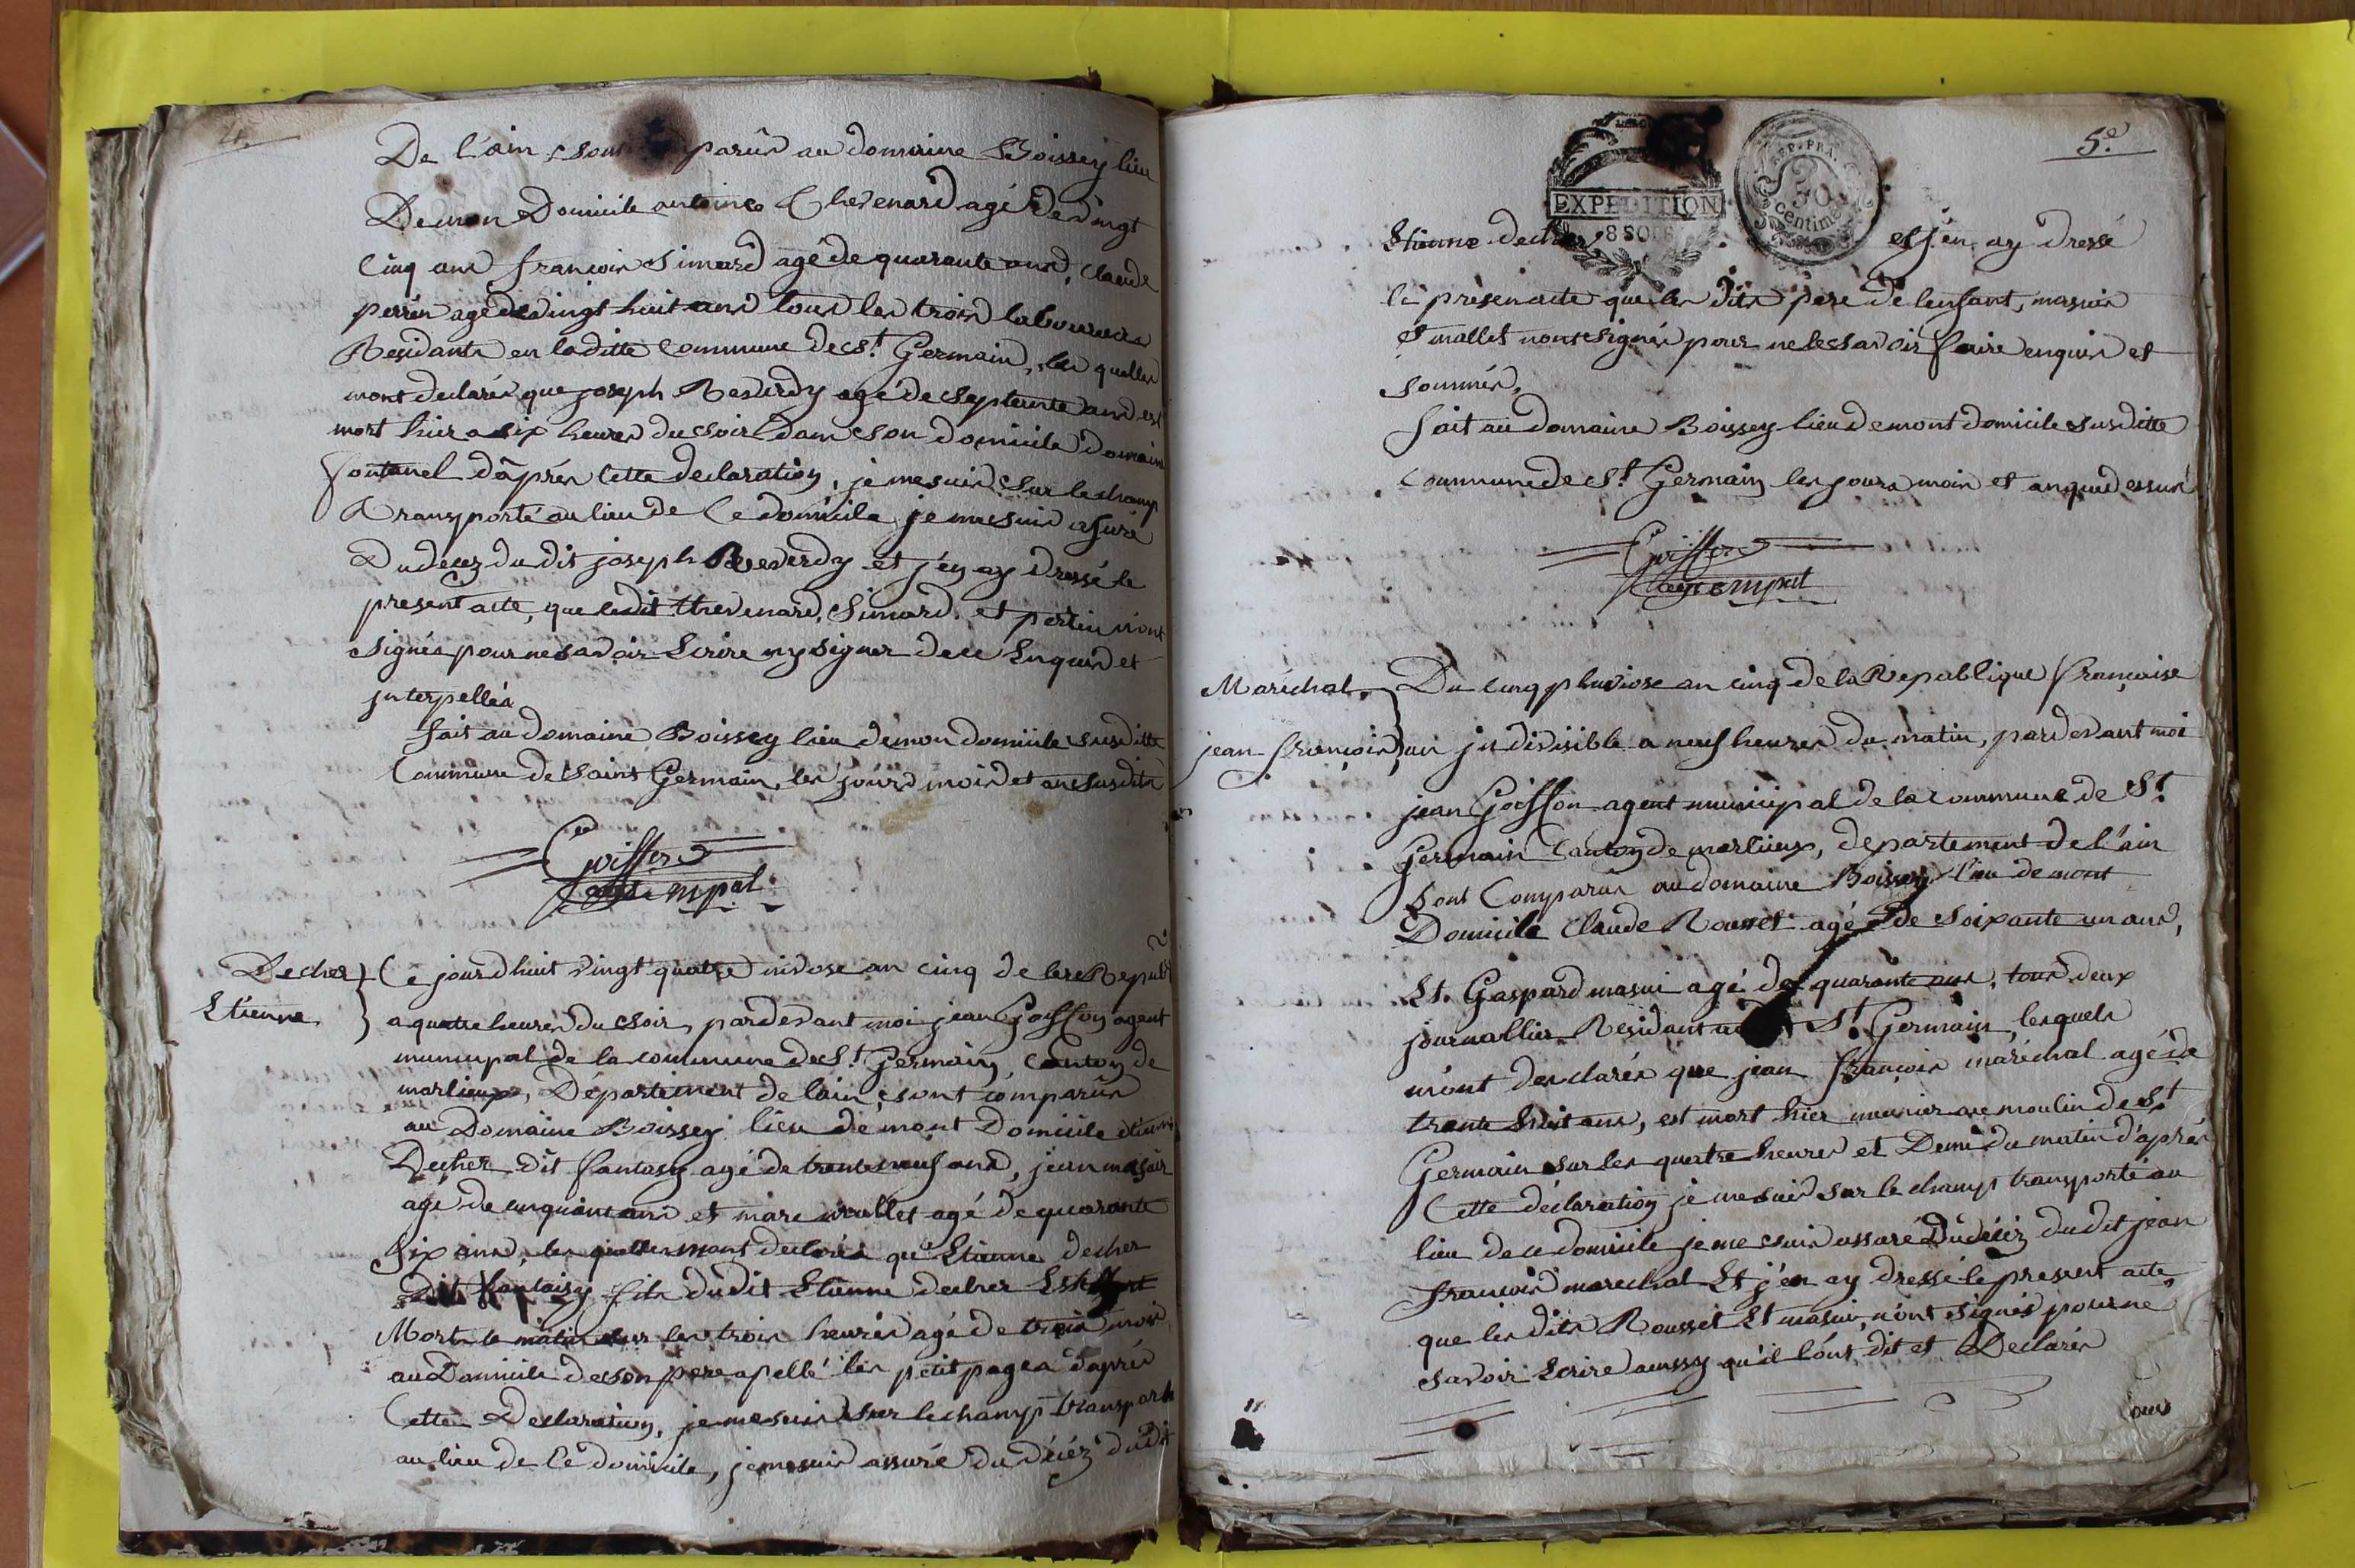 4.
De l'ain, sont parûs au domaine Boissey lieu
De mon Domicile antoine Chevenard agé de vingt
Cinq ans françois Simard agé de quarante ans, claude
perrin agé de vingt huit ans tous les trois laboureurs
Residants en laditte Commune de St Germain, les quelles
mont declarés que joseph Reverdy agé de septente ans est
mort hier a six heures du soir Dans son domicile domaine
fontanel d'âprés Cette declaration, je me suis sur le champ
transporté au lieu de Ce domicile je me suis assuré
Du decez du dit joseph Reverdy et j'en ay Dressé le
present acte, que ledit thevenard, Simard, et perrin n'ont
signés pour ne savoir Ecrire ny signer de ce Enquis et
jnterpellés
fait au domaine Boissey lieu de mon domicile susditte
Commune de saint Germain, les jours mois et an susdits
Goiffon
agt mpal
Decher
Etienne
Ce jourd'huit vingt quatre nivose an cinq de lere Repube
a quatre heures du soir, pardevant moi jean Goiffon agent
municipal de la commune de St Germain, Canton de
marlieux, Département de lain, sont comparûs
au Domaine Boissey lieu de mont Domicile etienne
Decher dit fantasy agé de trente neuf ans, jean masuir
agé de cinquante ans et marc mallet agé de quarante
six ans, les quelles mont declarés qu'Etienne decher
dit fantaisy fils dudit Etienne decher Est
Mort le matin sur les trois heures agé de trois mois
au Domicile de son pere apellé les petit pages d'aprés
Cette Declaration, je me suis sur le champ transporté
au lieu de Ce domicile, je me suis assuré du décéz dudit
5e
EXPEDITION
8 SOLS
REP. FRA.
50
centimes
Etienne decher et j'en ay dressé
le présen acte que les dits pere de lenfant, masuir
et mallet nont signés pour ne le savoir faire enquis et
sommés,
fait au Domaine Boissey lieu de mont domicile susditte
Commune de St Germain les jours mois et an que dessus
Goiffon
agt mpal
Maréchal
jean françois
Du cinq pluviose an cinq de la Republique française
un jndivisible a neuf heures du matin, pardevant moi
jean Goiffon agent municipal de la commune de St
Germain Canton de marlieux, departement de l'ain
sont Comparûs au domaine Boissey lieu de mont
Domicile Claude Rousset agé de soixante un ans,
Et Gaspard masui agé de quarante ans, tous deux
journallier Residant a St Germain, lesquels
m'ont desclarés que jean françois maréchal agé de
trante huit ans, est mort hier meunier au moulin de St
Germain sur les quatre heures et Demi du matin d'aprés
Cette déclaration je me suis sur le champ transporte au
lieu de ce domicile je me suis assuré Du décéz dudit jean
françois marechal Et j'en ay dressé le present acte,
que les dits Rousset Et masui, n'ont signés pour ne
savoir Ecrire aussy qu'il lónt dit et Declarés